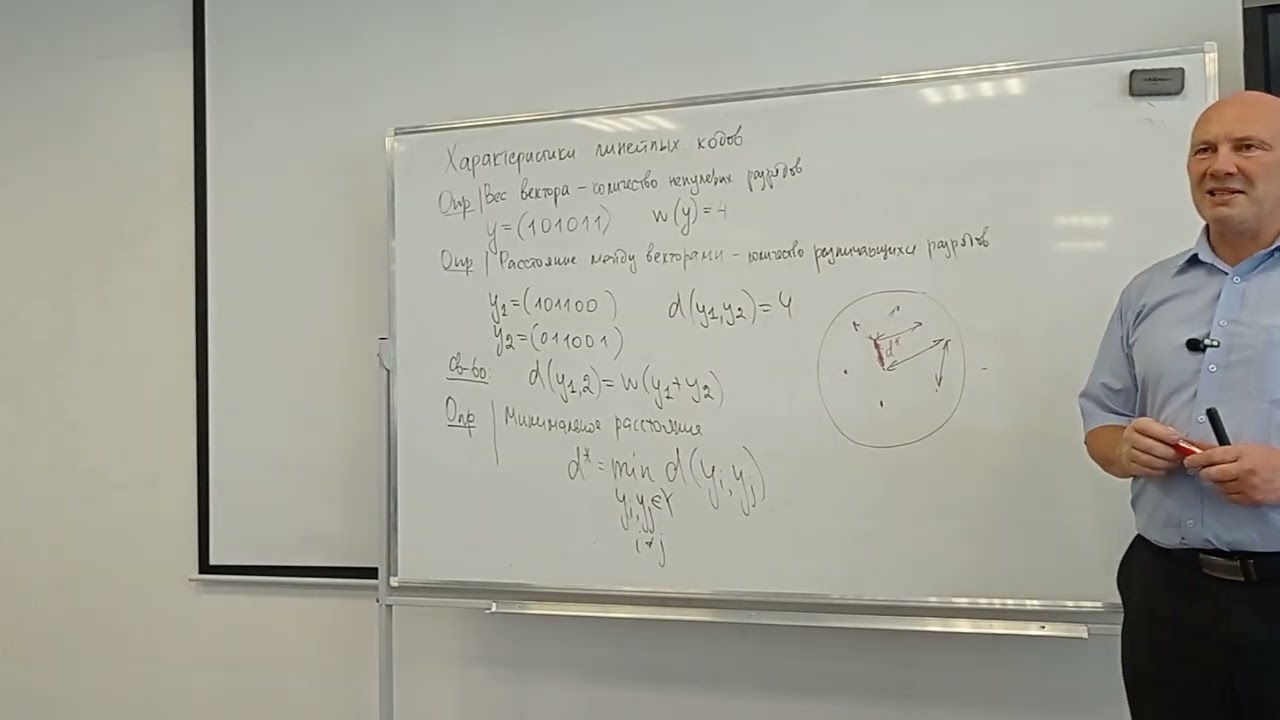 Характеристики линейных кодов
Опр | Вес вектора – количество ненулевых разрядов
y=(101011) w(y)=4
Опр | Расстояние между векторами – количество различающихся разрядов
y1=(101100) d(y1,y2)=4
y2=(011001)
d*
Св-во: d(y1,2)=w(y1+y2)
Опр | Минимальное расстояние
d*=min d(yi,yj)
yi,yj∈Y
i≠j